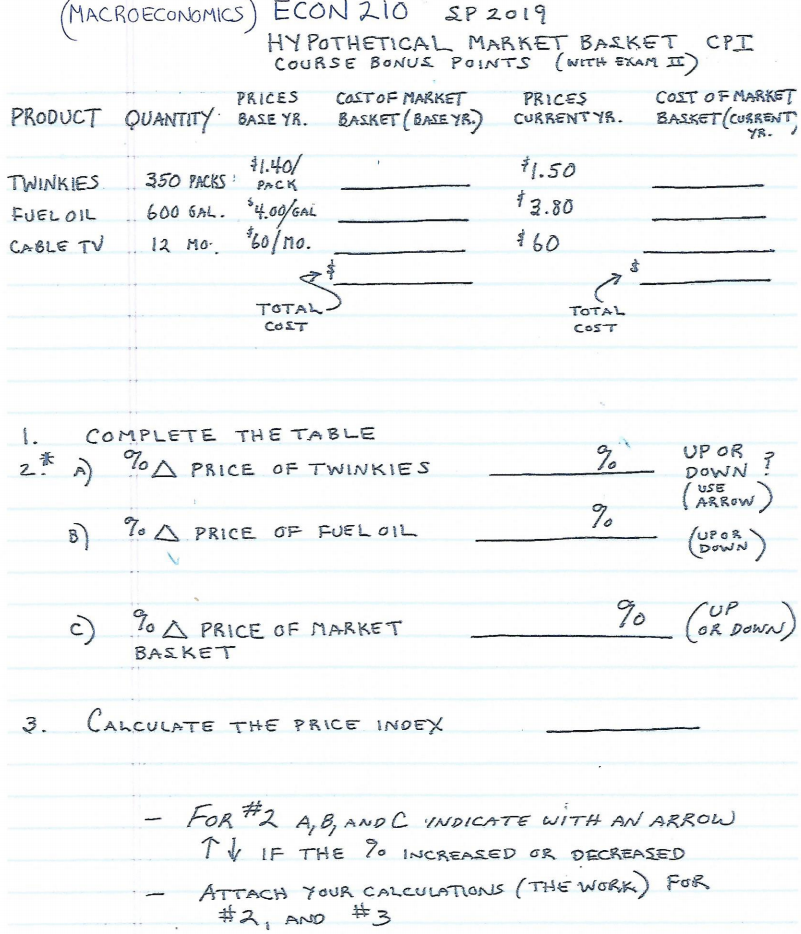 (MACROECONOMICS) ECON 210 SP 2019
HYPOTHETICAL MARKET BASKET CPI
COURSE BONUS POINTS (WITH EXAM II)
PRODUCT QUANTITY PRICES BASE YR. COST OF MARKET BASKET (BASE YR.) PRICES CURRENT YR. COST OF MARKET BASKET (CURRENT YR.)
TWINKIES 350 PACKS $1.40/PACK $1.50
FUEL OIL 600 GAL. $4.00/GAL $3.80
CABLE TV 12 MO. $60/MO. $60
$ $
TOTAL COST TOTAL COST
1. COMPLETE THE TABLE
2.* A) %△ PRICE OF TWINKIES % UP OR DOWN ? (USE ARROW)
B) %△ PRICE OF FUEL OIL % (UP OR DOWN)
C) %△ PRICE OF MARKET BASKET % (UP OR DOWN)
3. CALCULATE THE PRICE INDEX
— FOR #2 A, B, AND C INDICATE WITH AN ARROW
↑↓ IF THE % INCREASED OR DECREASED
— ATTACH YOUR CALCULATIONS (THE WORK) FOR
#2, AND #3